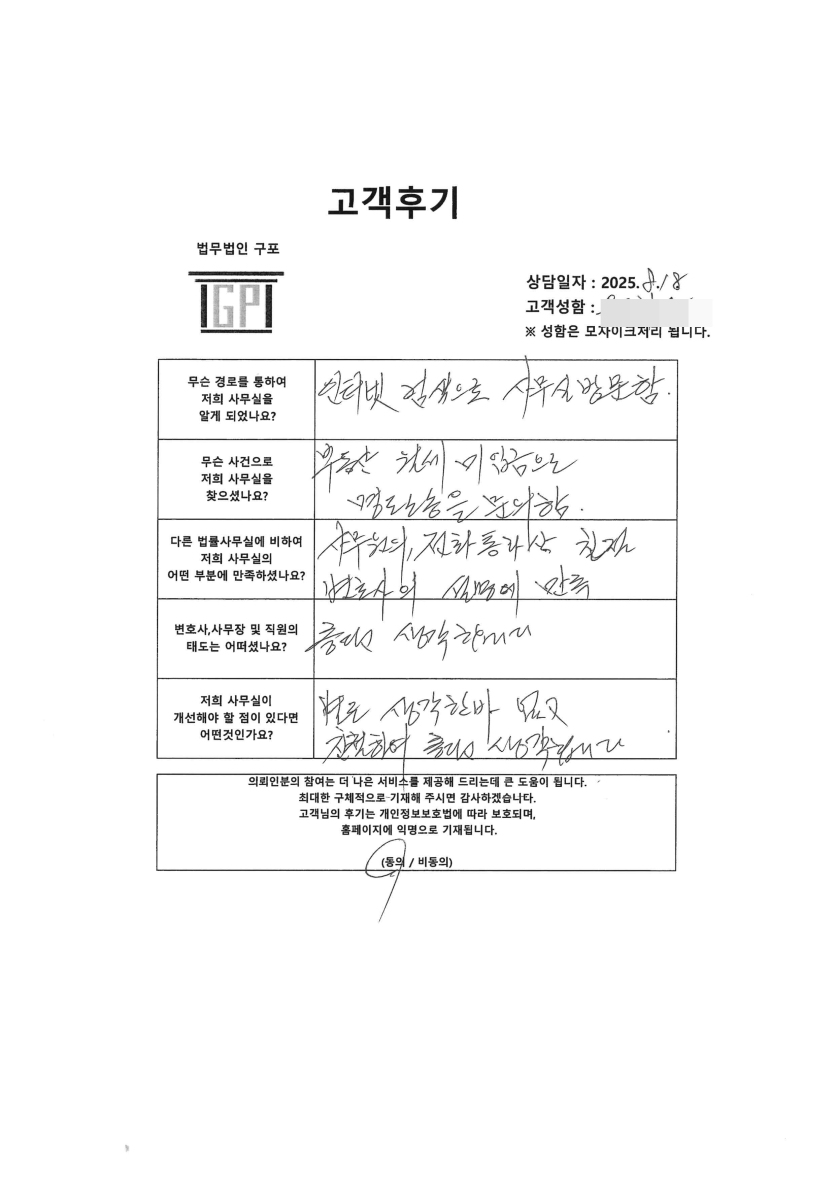 고객후기
법무법인 구포
IGPI
상담일자 : 2025. 8. 18
고객성함 :
※ 성함은 모자이크처리 됩니다.
무슨 경로를 통하여
저희 사무실을
알게 되었나요?
인터넷 검색으로 사무실 방문함.
무슨 사건으로
저희 사무실을
찾으셨나요?
부동산 월세 미입금으로
명도소송을 문의함.
다른 법률사무실에 비하여
저희 사무실의
어떤 부분에 만족하셨나요?
사무원의, 전화통화상 친절
변호사의 설명에 만족
변호사,사무장 및 직원의
태도는 어떠셨나요?
생각합니다
저희 사무실이
개선해야 할 점이 있다면
어떤것인가요?
별로 생각한바 없고
친절하여 생각합니다
의뢰인분의 참여는 더 나은 서비스를 제공해 드리는데 큰 도움이 됩니다.
최대한 구체적으로 기재해 주시면 감사하겠습니다.
고객님의 후기는 개인정보보호법에 따라 보호되며,
홈페이지에 익명으로 기재됩니다.
(동의 / 비동의)